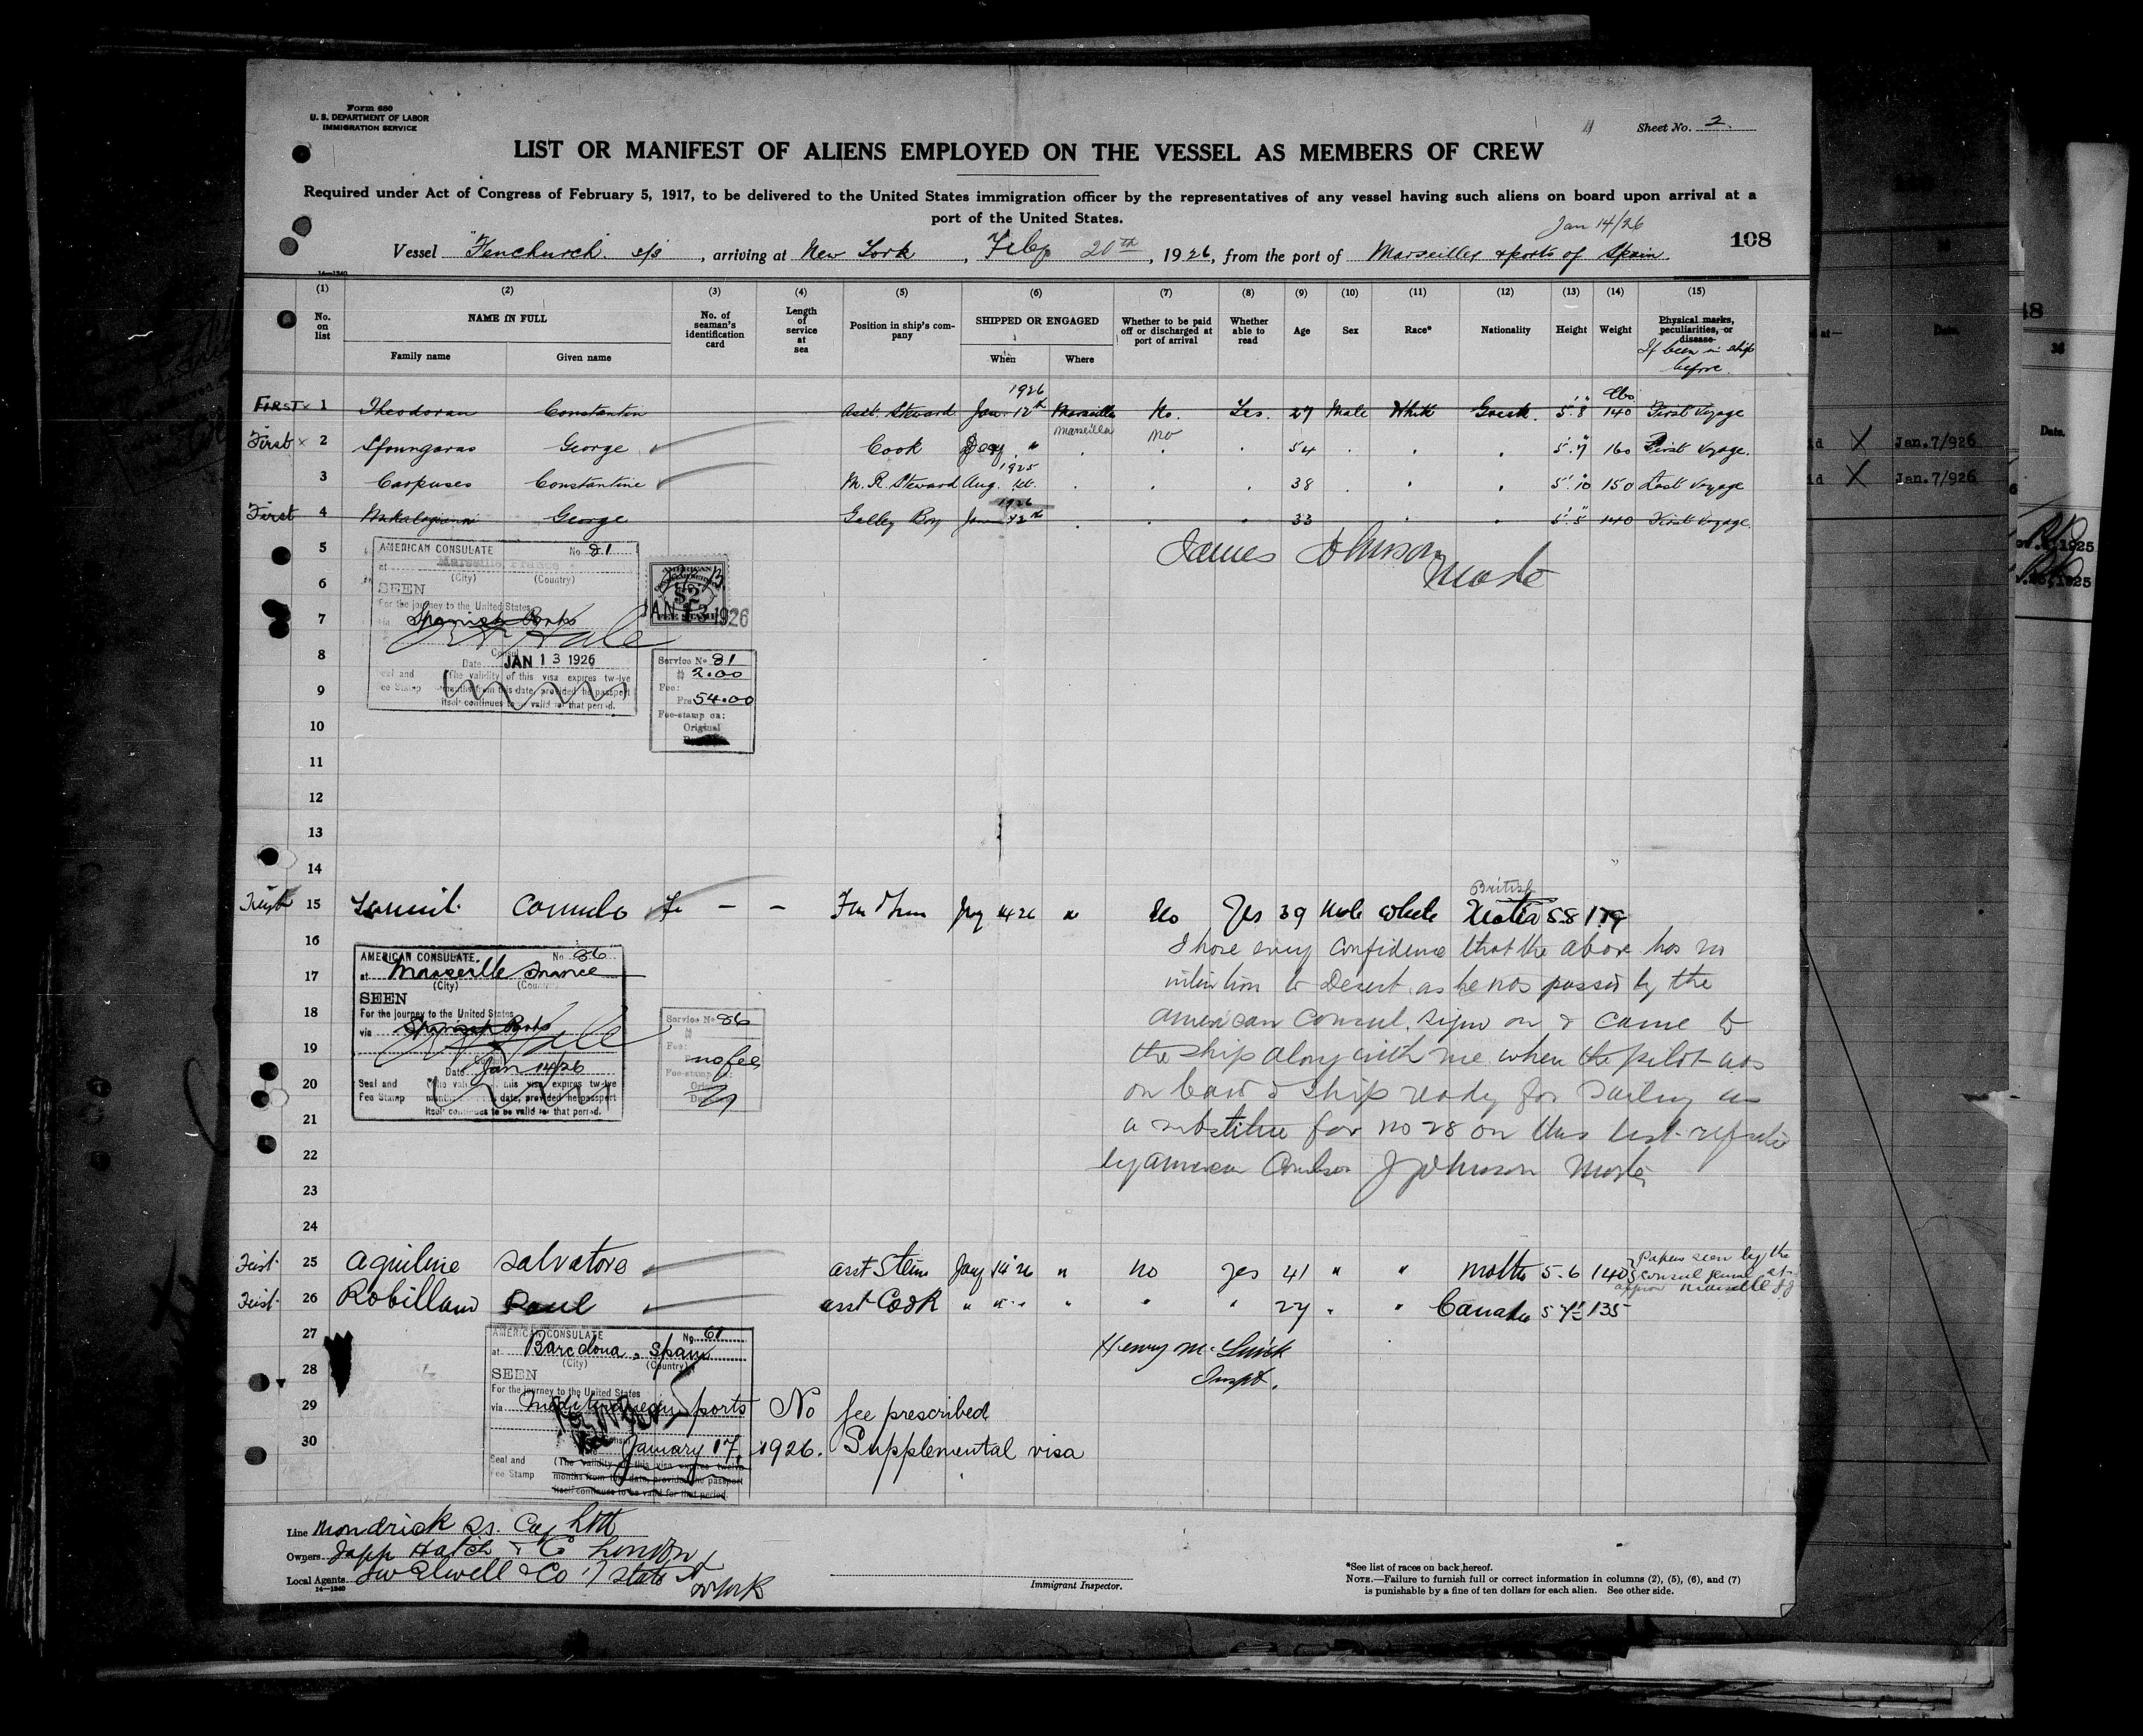 Form 680
U. S. DEPARTMENT OF LABOR
IMMIGRATION SERVICE
Sheet No. 2.
LIST OR MANIFEST OF ALIENS EMPLOYED ON THE VESSEL AS MEMBERS OF CREW
Required under Act of Congress of February 5, 1917, to be delivered to the United States immigration officer by the representatives of any vessel having such aliens on board upon arrival at a
port of the United States.
Jan 14/26
108
Vessel "Fenchurch" s/s, arriving at New York, Feby 20th, 1926, from the port of Marseilles & ports of Spain.
14—1240
(1) (2) (3) (4) (5) (6) (7) (8) (9) (10) (11) (12) (13) (14) (15)
No. on list
NAME IN FULL
Family name Given name
No. of seaman's identification card
Length of service at sea
Position in ship's company
SHIPPED OR ENGAGED
When Where
Whether to be paid off or discharged at port of arrival
Whether able to read
Age
Sex
Race*
Nationality
Height
Weight
Physical marks, peculiarities, or disease
If been in ship before.
1926
Lbs.
FIRST x 1 Theodoran Constantin Asst. Steward Jan. 12th Marseilles No. Yes. 27 Male White Greek 5' 8" 140 First Voyage
Marseilles no
First x 2 Sfoungaras George Cook " 54 5' 7" 160 First Voyage.
1925
3 Carpuses Constantine M. R. Steward Aug. 38 5' 10 150 Last Voyage
1926
First 4 George Galley Boy 12th 33 5' 5" 140 First Voyage.
5
6
7
8
9
10
11
12
13
14
AMERICAN CONSULATE No 81
at Marseille, France
(City) (Country)
SEEN
For the journey to the United States
via Spanish Ports
Consul
Date JAN 13 1926
Seal and Fee Stamp
(The validity of this visa expires twelve
months from this date, provided the passport
itself continues to be valid for that period.
AMERICAN
$2
FEE STAMP
JAN 13 1926
Service No 81
# 2.00
Fee:
Frs 54.00
Fee-stamp on:
Original
James Johnson
Master
British
15 Yes 39 Male White 5.8 179
16
17
18
19
20
21
22
23
24
I have every confidence that the above has no
intention to Desert as he was passed by the
american Consul, sign on & came to
the ship along with me when the pilot was
on board & ship ready for sailing as
a substitute for no 28 on this list
by american Johnson Master
AMERICAN CONSULATE No 86
at Marseille France
(City) (Country)
SEEN
For the journey to the United States
via Spanish Ports
Date Jan 14/26
Seal and Fee Stamp
(The validity of this visa expires twelve
months from this date, provided the passport
itself continues to be valid for that period.
Service No 86
Fee:
no fee
Fee-stamp on:
First 25 Aquiline Salvatore asst Stew Jany 14 26 " no yes 41 " " 5.6 140
Papers seen by the
Consul
Marseille
First 26 Robillard Paul asst Cook " " " " " 27 " " Canada 135
27
28
29
30
AMERICAN CONSULATE No. 61
at Barcelona, Spain
(City) (Country)
SEEN
For the journey to the United States
via Mediterranean ports
January 17, 1926.
No fee prescribed
Supplemental visa
Seal and Fee Stamp
(The validity of this visa expires twelve
months from this date, provided the passport
itself continues to be valid for that period.
Henry M.
Inspt.
Line
Owners Japp Hatch & Co London
Local Agents Elwell & Co 17 State St
14—1240
Immigrant Inspector.
*See list of races on back hereof.
NOTE.—Failure to furnish full or correct information in columns (2), (5), (6), and (7)
is punishable by a fine of ten dollars for each alien. See other side.
Date.
X Jan. 7/926
X Jan. 7/926
Date.